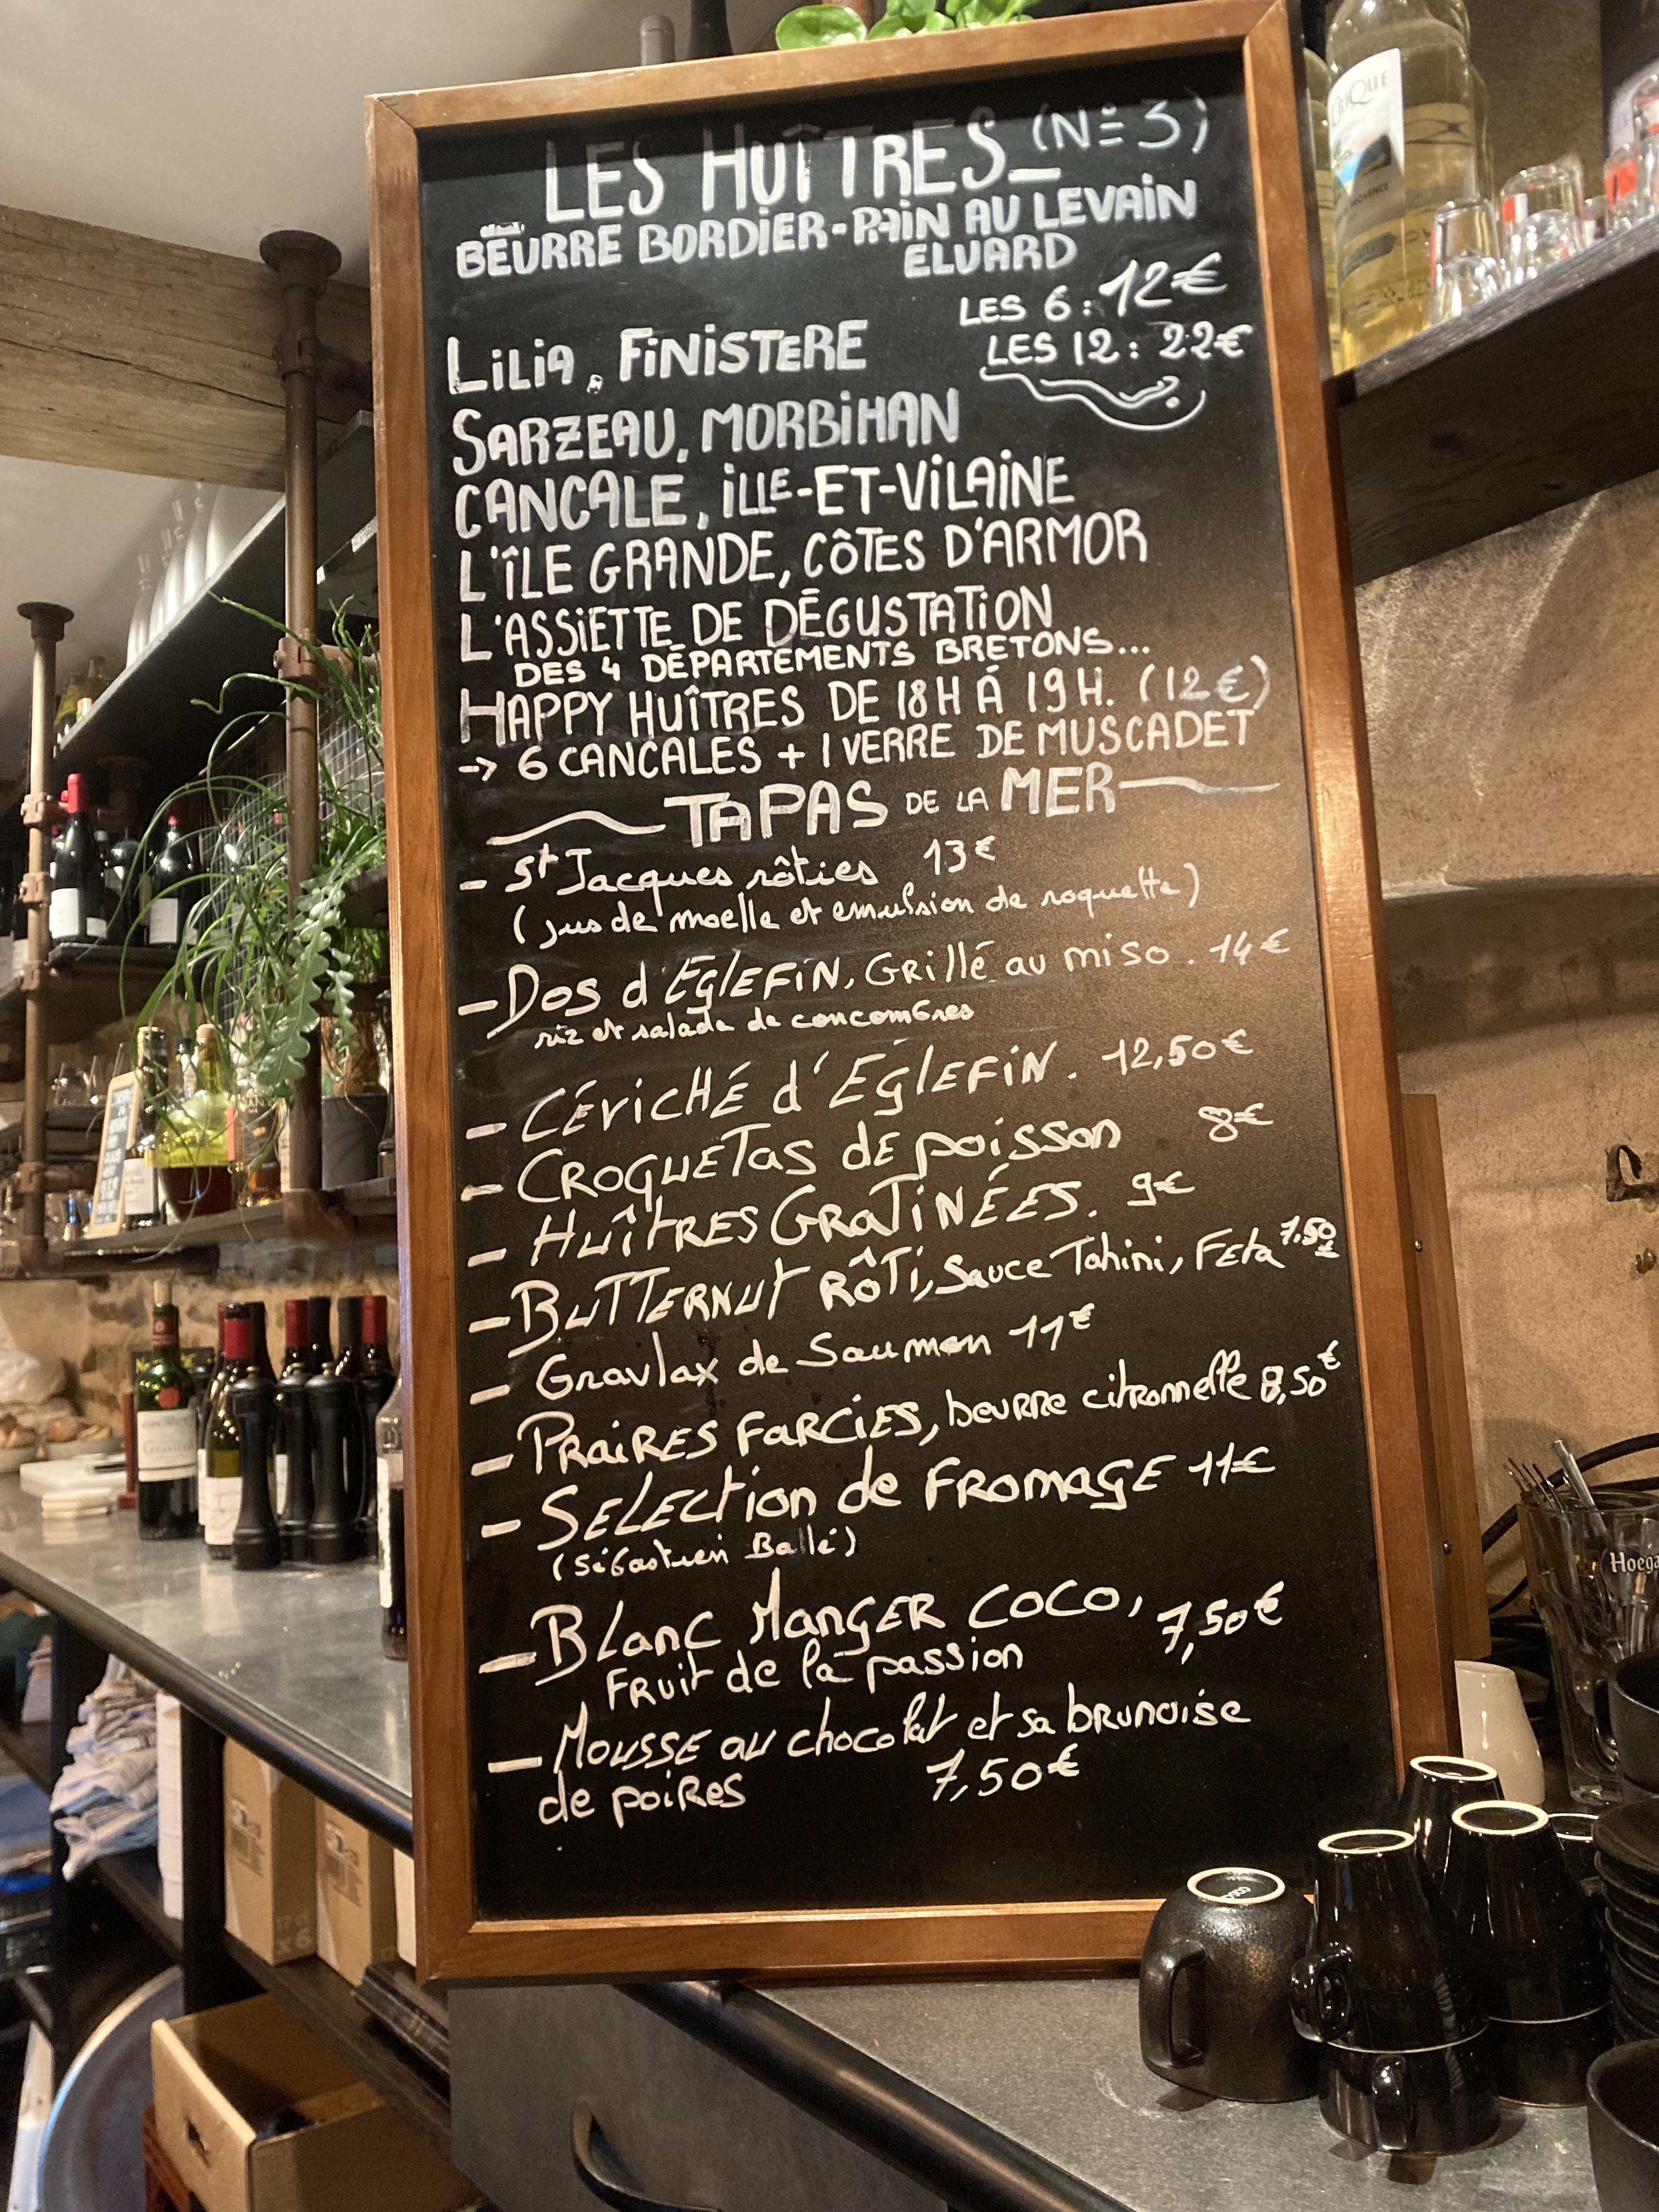 LES HUÎTRES_ (N° 3)
BEURRE BORDIER-PAIN AU LEVAIN
ELUARD
LES 6: 12€
LES 12: 22€
LILIA, FINISTERE
SARZEAU, MORBIHAN
CANCALE, ILLE-ET-VILAINE
L'ÎLE GRANDE, CÔTES D'ARMOR
L'ASSIETTE DE DÉGUSTATION
DES 4 DÉPARTEMENTS BRETONS...
HAPPY HUÎTRES DE 18H À 19H. (12€)
→ 6 CANCALES + 1 VERRE DE MUSCADET
TAPAS DE LA MER
- St Jacques rôties 13€
(jus de moelle et emulsion de roquette)
- Dos d'Eglefin, Grillé au miso. 14€
riz et salade de concombres
- Céviché d'Églefin. 12,50€
- Croquetas de poisson 8€
- Huîtres Gratinées. 9€
- Butternut rôti, Sauce Tahini, Feta 7,50€
- Gravlax de Saumon 11€
- Praires farcies, beurre citronnelle 8,50€
- Selection de fromage 11€
(Sébastien Ballé)
- Blanc Manger coco, 7,50€
Fruit de la passion
- Mousse au chocolat et sa brunoise
de poires 7,50€